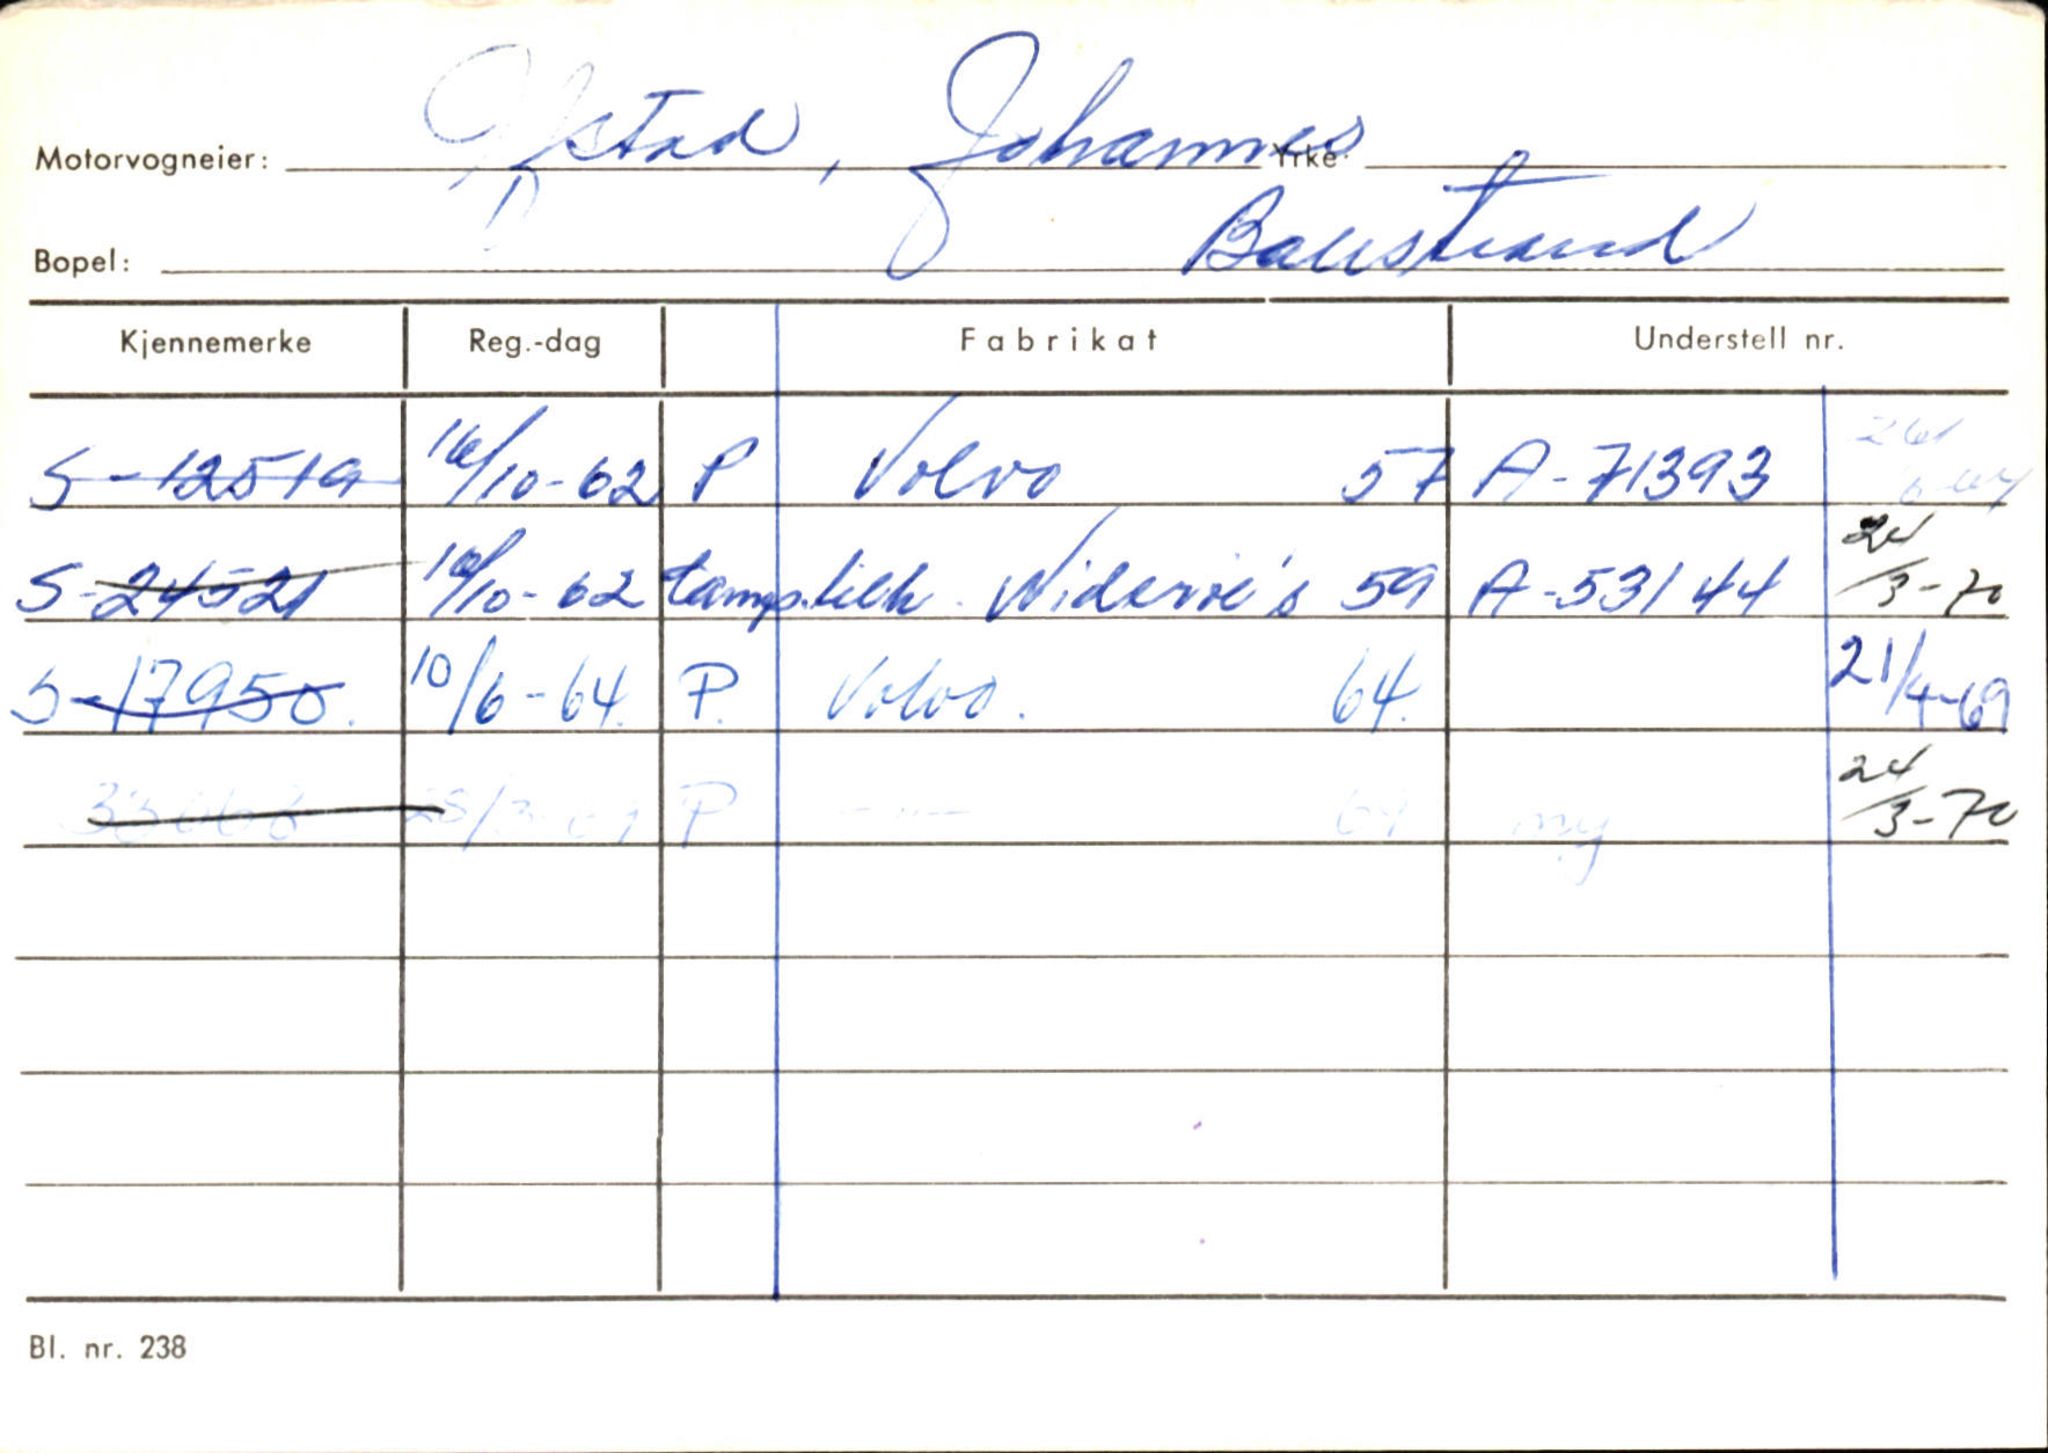 Motorvogneier: Ystad, Johannes Yrke:
Bopel: Balestrand
Kjennemerke Reg.-dag Fabrikat Understell nr.
S-12519 16/10-62 P Volvo 57 A-71393
S-24521 16/10-62 camp.tilh. Widerøe's 59 A-53144 24/3-70
S-17950. 10/6-64. P. Volvo. 64. 21/4-69
33068 28/3-69 P -"- 69 ny 24/3-70
Bl. nr. 238